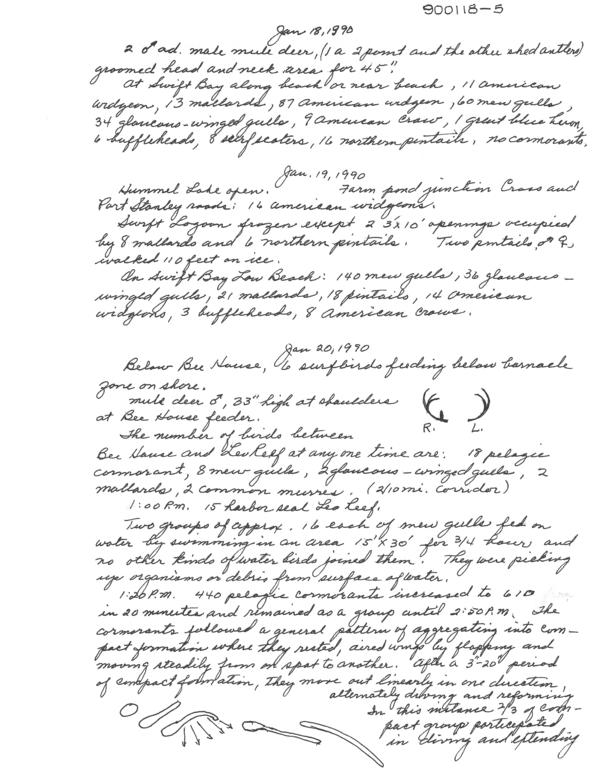 900118-5
Jan 18, 1990
2 ♂ ad. male mule deer, (1 a 2 point and the other shed antlers)
groomed head and neck area for 45".
At Swift Bay along beach or near beach, 11 american
widgeon, 13 mallards, 87 american widgeon, 60 mew gulls,
34 glaucous-winged gulls, 9 American Crow, 1 great blue heron,
6 buffleheads, 8 surf scoters, 16 northern pintails, no cormorants.
Jan. 19, 1990
Hummel Lake open. Farm pond junction Cross and
Port Stanley roads: 16 american widgeons.
Swift Lagoon frozen except 2 3'x10' openings occupied
by 8 mallards and 6 northern pintails. Two pintails, ♂ ♀,
walked 110 feet on ice.
On Swift Bay Low Beach: 140 mew gulls, 36 glaucous-
winged gulls, 21 mallards, 18 pintails, 14 american
widgeons, 3 buffleheads, 8 American crows.
Jan 20, 1990
Below Bee House, 6 surfbirds feeding below barnacle
zone on shore.
mule deer ♂, 33" high at shoulders
at Bee House feeder.
R. L.
The number of birds between
Bee House and Leo Reef at any one time are: 18 pelagic
cormorant, 8 mew gulls, 2 glaucous-winged gulls, 2
mallards, 2 common murres. (2/10 mi. corridor)
1:00 P.m. 15 harbor seal Leo Reef.
Two groups of approx. 16 each of mew gulls fed on
water by swimming in an area 15'x30' for 3/4 hour and
no other kinds of water birds joined them. They were picking
up organisms or debris from surface of water.
1:20 P.M. 440 pelagic cormorants increased to 610
in 20 minutes and remained as a group until 2:50 P.M. The
cormorants followed a general pattern of aggregating into com-
pact formation where they rested, aired wings by flapping and
moving steadily from on spot to another. After a 3"-20" period
of compact formation, they move out linearly in one direction,
alternately diving and reforming.
In this instance 2/3 of com-
pact group participated
in diving and extending